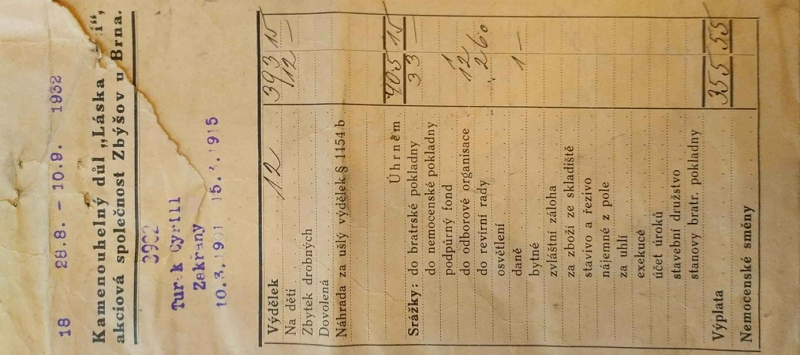 18 28.8. - 10.9. 1932
Kamenouhelný důl „Láska
akciová společnost Zbýšov u Brna.
3902
Cyrill
Zakřany
Výdělek 12 393 15
Na děti 12 —
Zbytek drobných
Dovolená
Náhrada za ušlý výdělek § 1154 b
Úhrnem 405 15
Srážky: do bratrské pokladny 33 —
do nemocenské pokladny
podpůrný fond 1
do odborové organisace 12
do revírní rady 2 60
osvětlení
daně 1 —
bytné
zvláštní záloha
za zboží ze skladiště
stavivo a řezivo
nájemné z pole
za uhlí
exekucé
účet úroků
stavební družstvo
stanovy bratr. pokladny
Výplata 355 55
Nemocenské směny